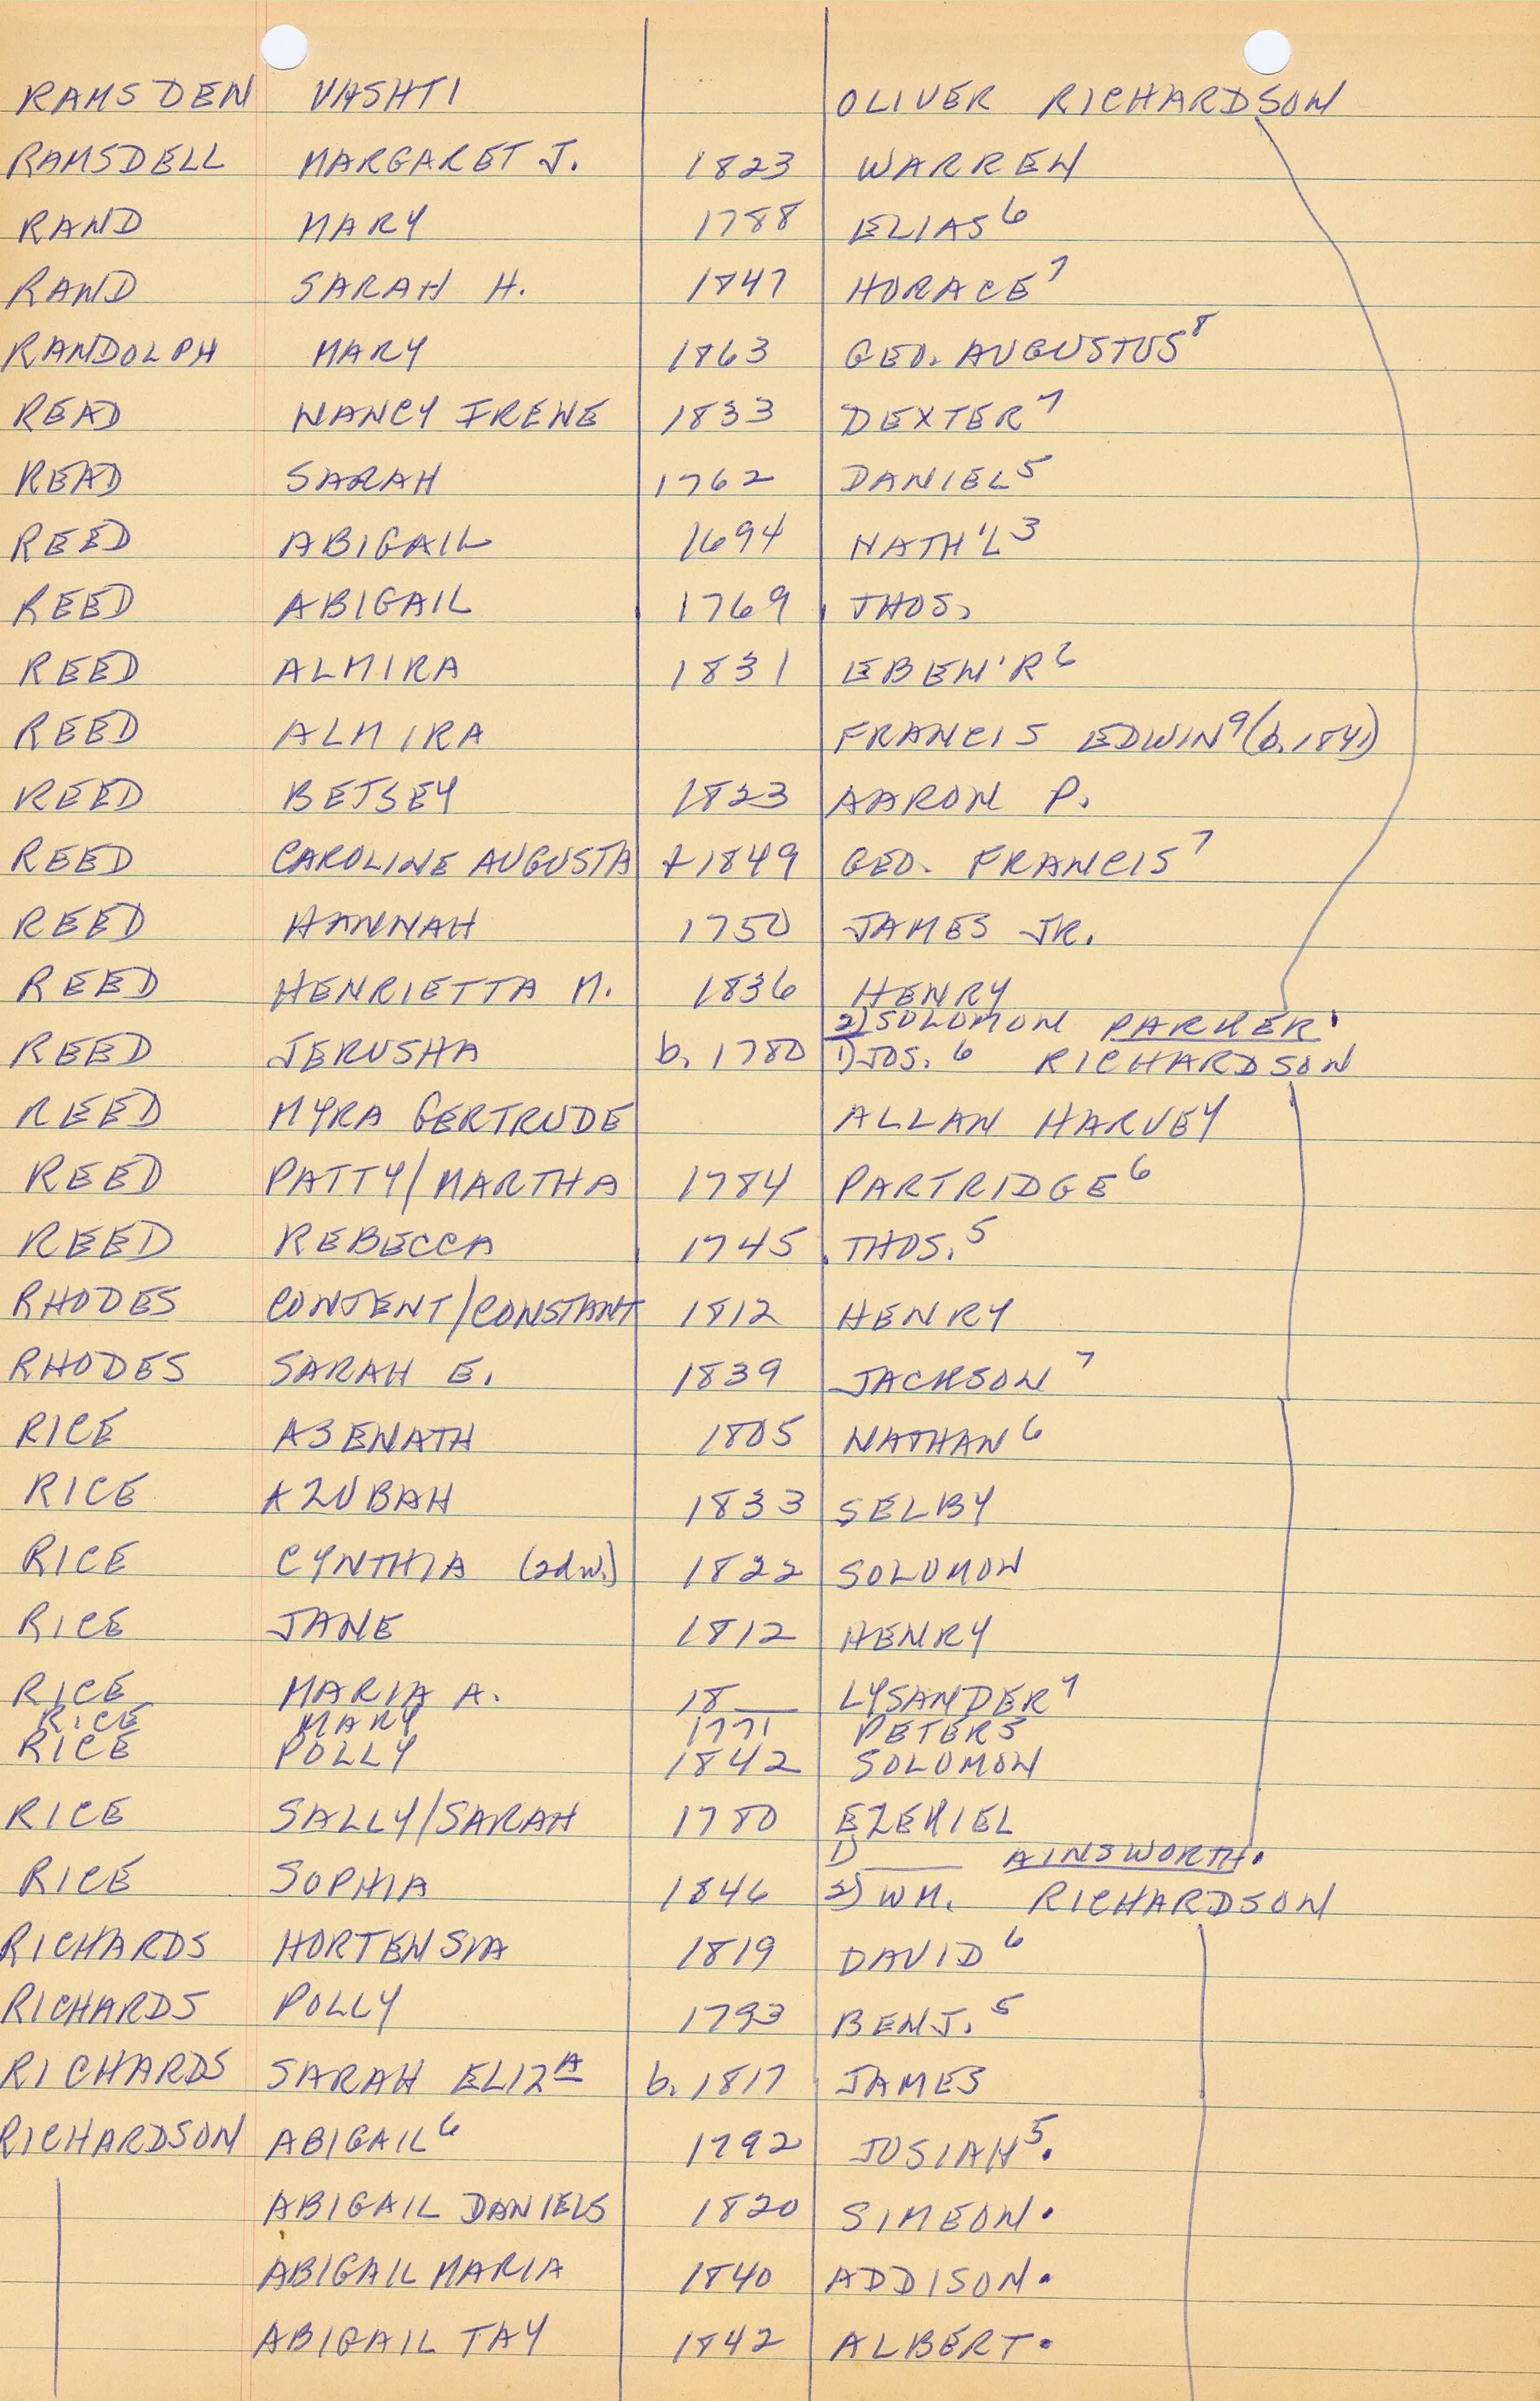 RAMSDEN VASHTI OLIVER RICHARDSON
RAMSDELL MARGARET J. 1823 WARREN
RAND MARY 1788 ELIAS⁶
RAND SARAH H. 1847 HORACE⁷
RANDOLPH MARY 1863 GEO. AUGUSTUS⁸
READ NANCY IRENE 1833 DEXTER⁷
READ SARAH 1762 DANIEL⁵
REED ABIGAIL 1694 NATH'L³
REED ABIGAIL 1769 THOS.
REED ALMIRA 1831 EBEN'R⁶
REED ALMIRA FRANCIS EDWIN⁹ (b. 1841)
REED BETSEY 1823 AARON P.
REED CAROLINE AUGUSTA +1849 GEO. FRANCIS⁷
REED HANNAH 1750 JAMES JR.
REED HENRIETTA M. 1836 HENRY
2) SOLOMON PARKER
REED JERUSHA b. 1780 1) JOS.⁶ RICHARDSON
REED MYRA GERTRUDE ALLAN HARVEY
REED PATTY/MARTHA 1784 PARTRIDGE⁶
REED REBECCA 1745 THOS.⁵
RHODES CONTENT/CONSTANT 1812 HENRY
RHODES SARAH E. 1839 JACKSON⁷
RICE ASENATH 1805 NATHAN⁶
RICE AZUBAH 1833 SELBY
RICE CYNTHIA (2d w.) 1822 SOLOMON
RICE JANE 1812 HENRY
RICE MARIA A. 18__ LYSANDER⁷
RICE MARY 1771 PETER5
RICE POLLY 1842 SOLOMON
RICE SALLY/SARAH 1780 EZEKIEL
1) ____ AINSWORTH.
RICE SOPHIA 1846 2) WM. RICHARDSON
RICHARDS HORTENSIA 1819 DAVID⁶
RICHARDS POLLY 1793 BENJ.⁵
RICHARDS SARAH ELIZᴬ b. 1817 JAMES
RICHARDSON ABIGAIL⁶ 1792 JOSIAH⁵.
ABIGAIL DANIELS 1820 SIMEON.
ABIGAIL MARIA 1840 ADDISON.
ABIGAIL TAY 1842 ALBERT.